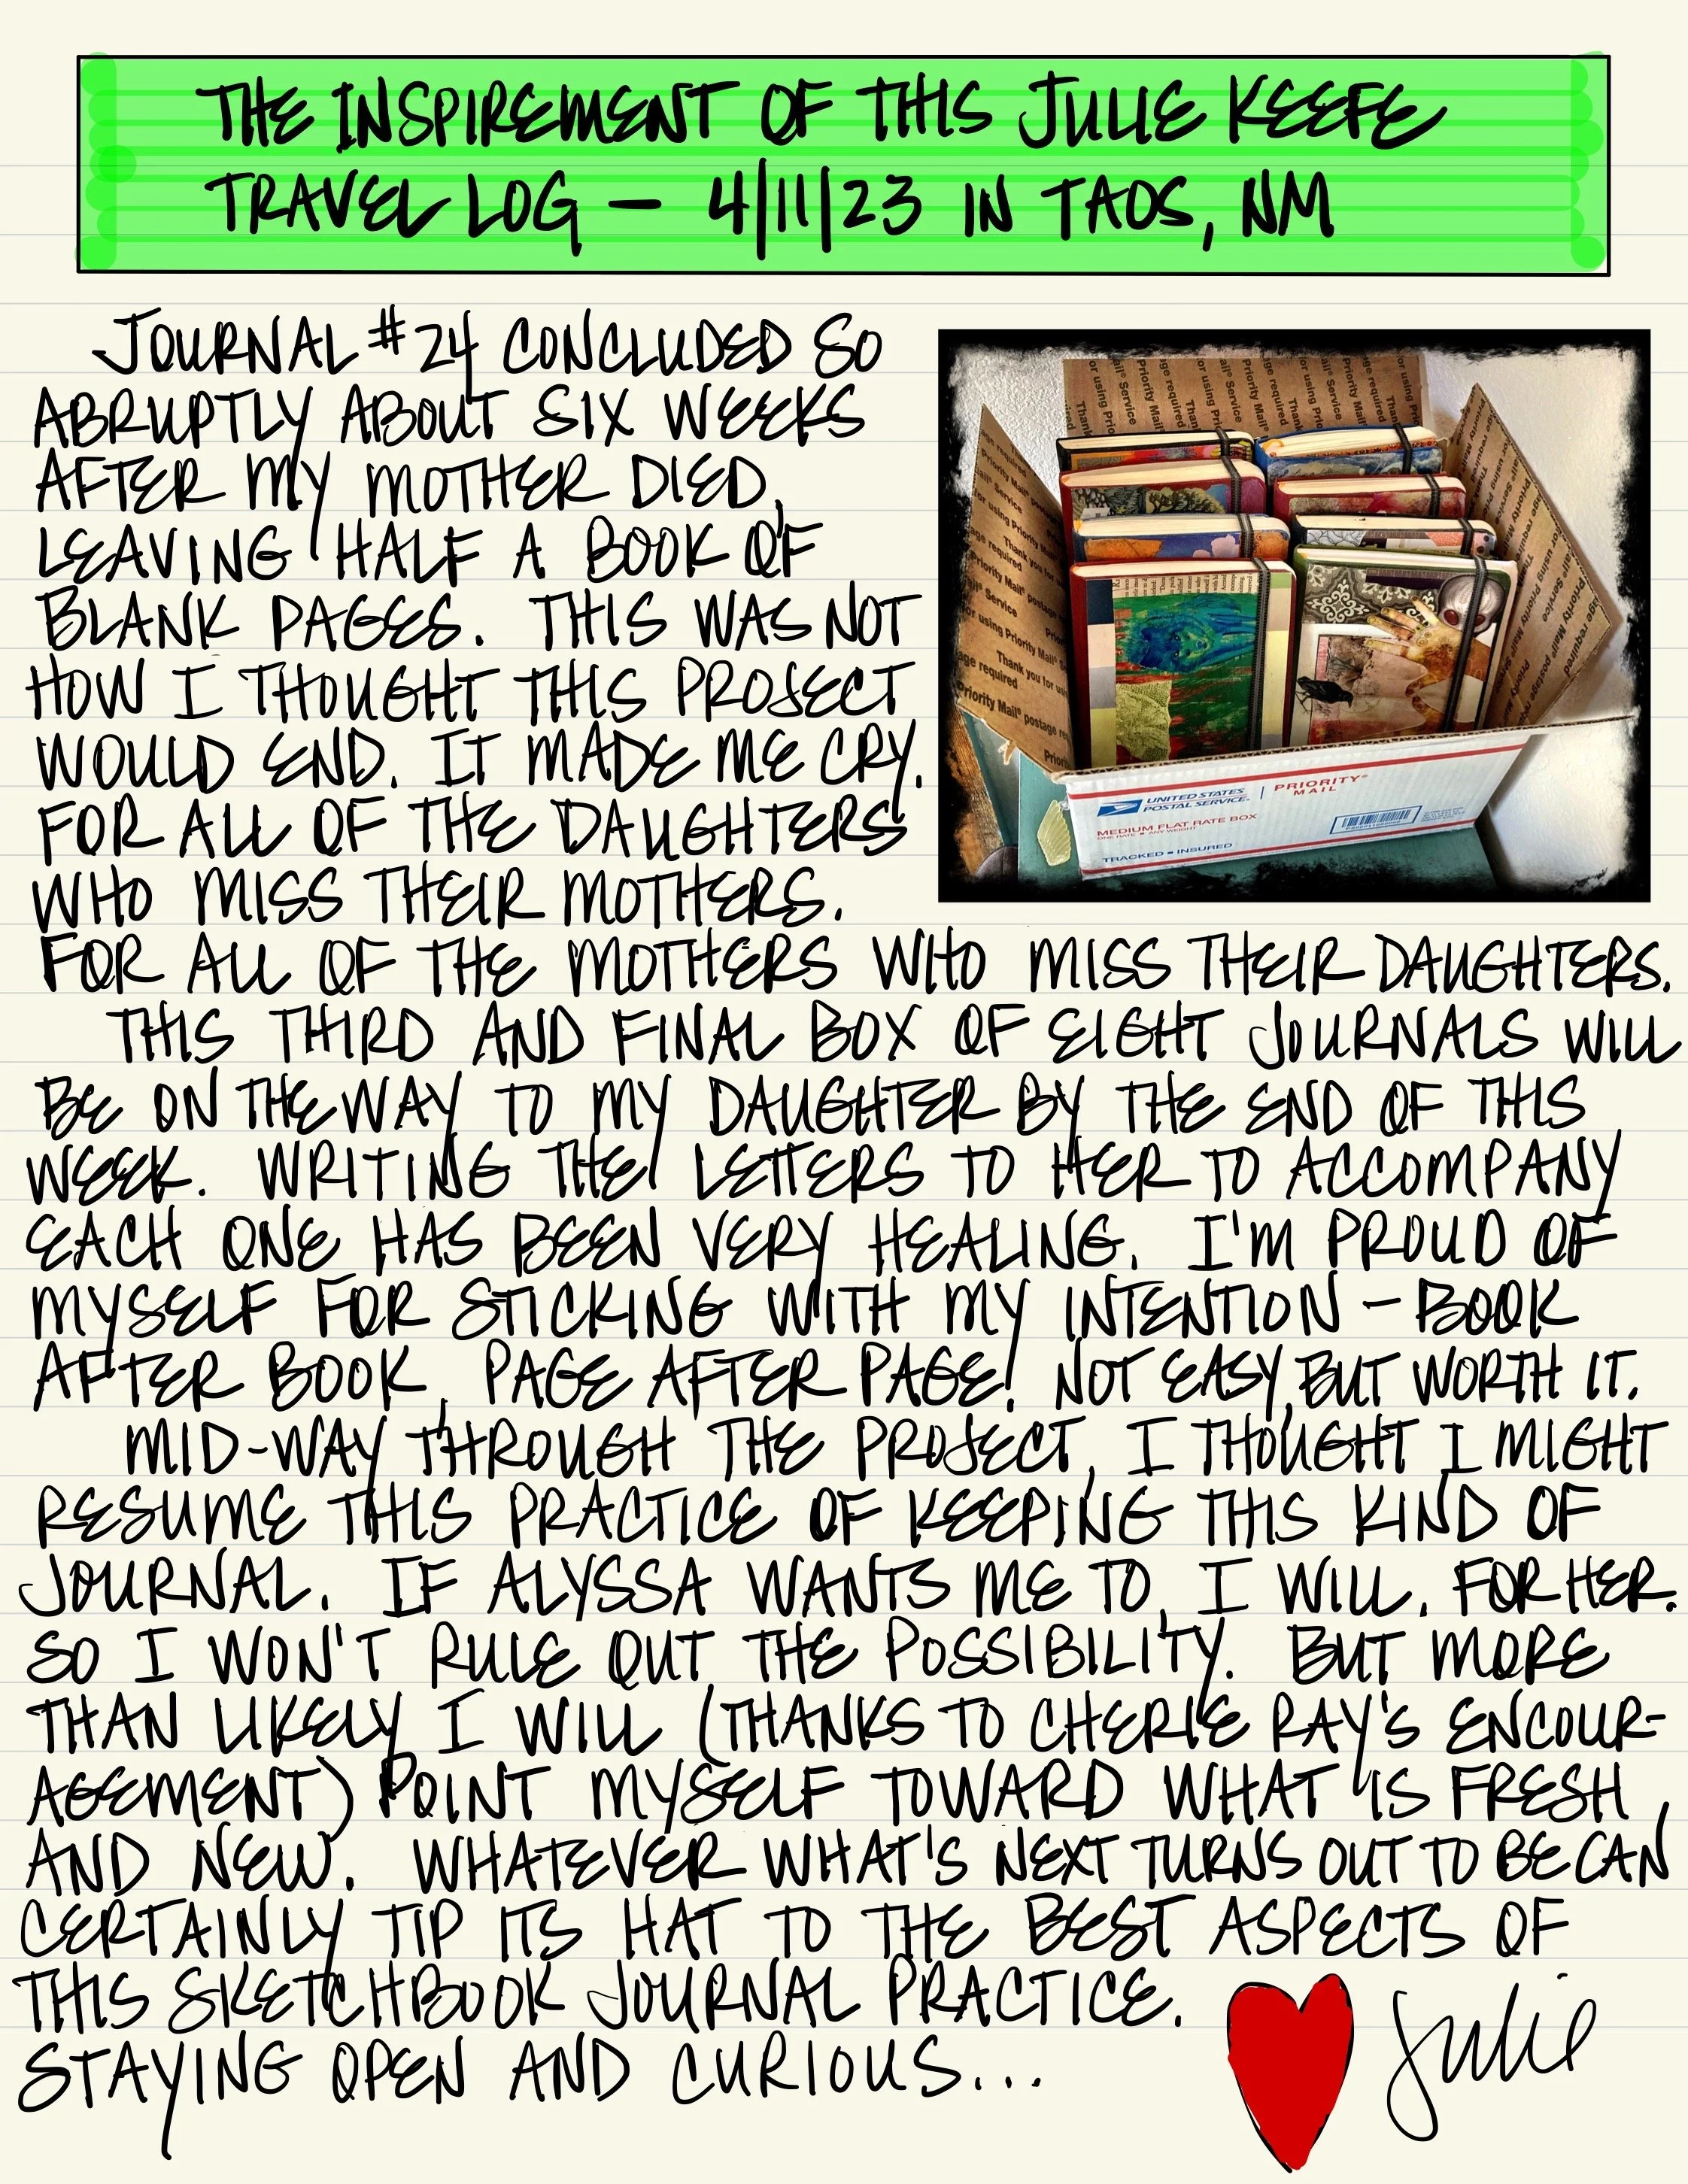 THE INSPIREMENT OF THIS JULIE KEEFE
TRAVEL LOG — 4/11/23 IN TAOS, NM
JOURNAL #24 CONCLUDED SO
ABRUPTLY ABOUT SIX WEEKS
AFTER MY MOTHER DIED,
LEAVING HALF A BOOK OF
BLANK PAGES. THIS WAS NOT
HOW I THOUGHT THIS PROJECT
WOULD END. IT MADE ME CRY.
FOR ALL OF THE DAUGHTERS
WHO MISS THEIR MOTHERS.
FOR ALL OF THE MOTHERS WHO MISS THEIR DAUGHTERS.
THIS THIRD AND FINAL BOX OF EIGHT JOURNALS WILL
BE ON THE WAY TO MY DAUGHTER BY THE END OF THIS
WEEK. WRITING THE LETTERS TO HER TO ACCOMPANY
EACH ONE HAS BEEN VERY HEALING. I'M PROUD OF
MYSELF FOR STICKING WITH MY INTENTION – BOOK
AFTER BOOK, PAGE AFTER PAGE! NOT EASY, BUT WORTH IT.
MID-WAY THROUGH THE PROJECT, I THOUGHT I MIGHT
RESUME THIS PRACTICE OF KEEPING THIS KIND OF
JOURNAL. IF ALYSSA WANTS ME TO, I WILL. FOR HER.
SO I WON'T RULE OUT THE POSSIBILITY. BUT MORE
THAN LIKELY I WILL (THANKS TO CHERIE RAY'S ENCOUR-
AGEMENT) POINT MYSELF TOWARD WHAT IS FRESH
AND NEW. WHATEVER WHAT'S NEXT TURNS OUT TO BE CAN
CERTAINLY TIP ITS HAT TO THE BEST ASPECTS OF
THIS SKETCHBOOK JOURNAL PRACTICE.
STAYING OPEN AND CURIOUS...
Julie
UNITED STATES
POSTAL SERVICE®
PRIORITY®
MAIL
MEDIUM FLAT RATE BOX
ONE RATE ■ ANY WEIGHT
TRACKED ■ INSURED
Thank you for using Priority Mail® Service
Priority Mail® postage required